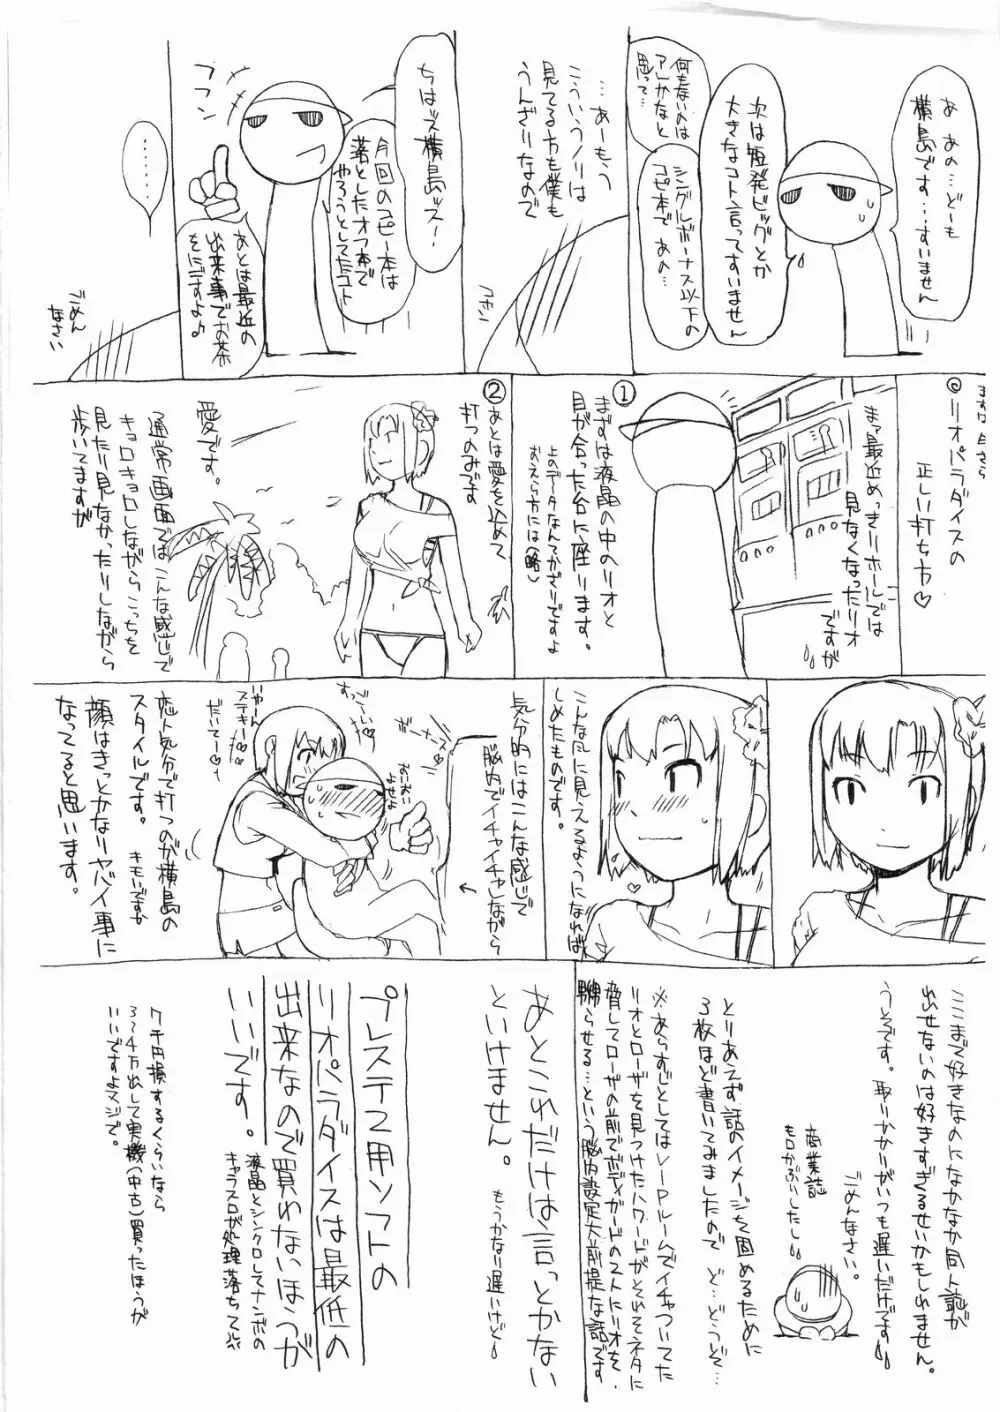 あ あの…どーも
横島です…すいません
次は短発ビッグとか
大きなコト言ってすいません
シングルボーナス以下の
コピ本で あの…
何もないのは
アレかなと
思って…
…あーもう
こういうノリは
見てる方も僕も
うんざりなので
コホン
ちはッス横島ッスー!
今回のコピー本は
落としたオフ本で
やろうとしてたコト
あとは最近の
出来事でお茶
をにごすよ♪
フフン
……
ごめん
なさい
◎リオパラダイスの
正しい打ち方♡
まァ最近めっきりホールでは
見なくなったリオ
ですが
①
まずは液晶の中のリオと
目が合った台に座ります。
上のデータなんてかざりですよ
おえら方には(略)
②
あとは愛を込めて
打つのみです
愛です。
通常画面ではこんな感じで
キョロキョロしながらこっちを
見たり見なかったりしながら
歩いてますが
こんな風に見えるようになれば
しめたものです。
気分的にはこんな感じで
脳内でイチャイチャしながら
すっごーい
いやーん
ステキー♡
だいてー♡
恋人気分で打つのが横島の
スタイルです。
キモいですか
顔はきっとかなりヤバイ事に
なってると思います。
ここまで好きなのになかなか同人誌が
出せないのは好きすぎるせいかもしれません。
うそです。取りかかりがいつも遅いだけです
ごめんなさい。
商業誌
もロかぶりしたし
とりあえず話のイメージを固めるために
3枚ほど書いてみましたので ど…どうぞ…
※あらすじとしてはVIPルームでイチャついてた
リオとローザを見つけたハワードがそれをネタに
脅してローザの前でボディガードのストにリオを
嬲らせる…という脳内設定大前提な話です
あとこれだけは言っとかない
といけません。
もうかなり遅いけど
プレステ2用ソフトの
リオパラダイスは最低の
出来なので買わないほうが
いいです。
液晶とシンクロしてナンボの
キャラスロが処理落ちって
7千円損するくらいなら
3~4万出して実機(中古)買ったほうが
いいですよマジで。